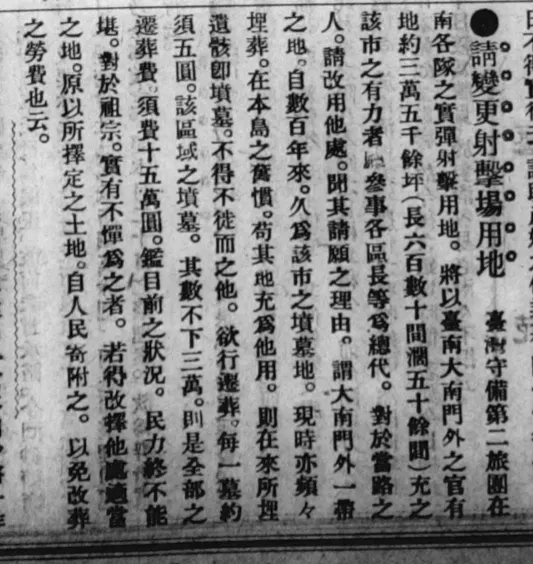 ●請變更射擊場用地　臺灣守備第二旅團在
南各隊之實彈射擊用地。將以臺南大南門外之官有
地約三萬五千餘坪(長六百數十間濶五十餘間)充之
該市之有力者廳參事各區長等爲總代。對於當路之
人。請改用他處。聞其請願之理由。謂大南門外一帶
之地。自數百年來。久爲該市之墳墓地。現時亦頻々
埋葬。在本島之舊慣。苟其地充爲他用。則在來所埋
遺骸卽墳墓。不得不徙而之他。欲行遷葬。每一墓約
須五圓。該區域之墳墓。其數不下三萬。則是全部之
遷葬費。須費十五萬圓。鑑目前之狀況。民力終不能
堪。對於祖宗。實有不憚爲之者。若得改擇他處適當
之地。原以所擇定之土地。自人民寄附之。以免改葬
之勞費也云。